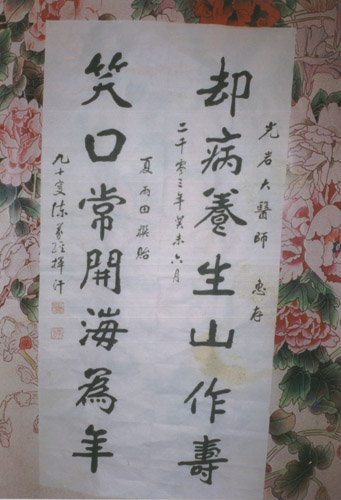 光岩大醫師 惠存
却病養生山作壽
二千零三年癸未六月
夏雨田撰貽
笑口常開海為年
九十叟陳義經揮汗